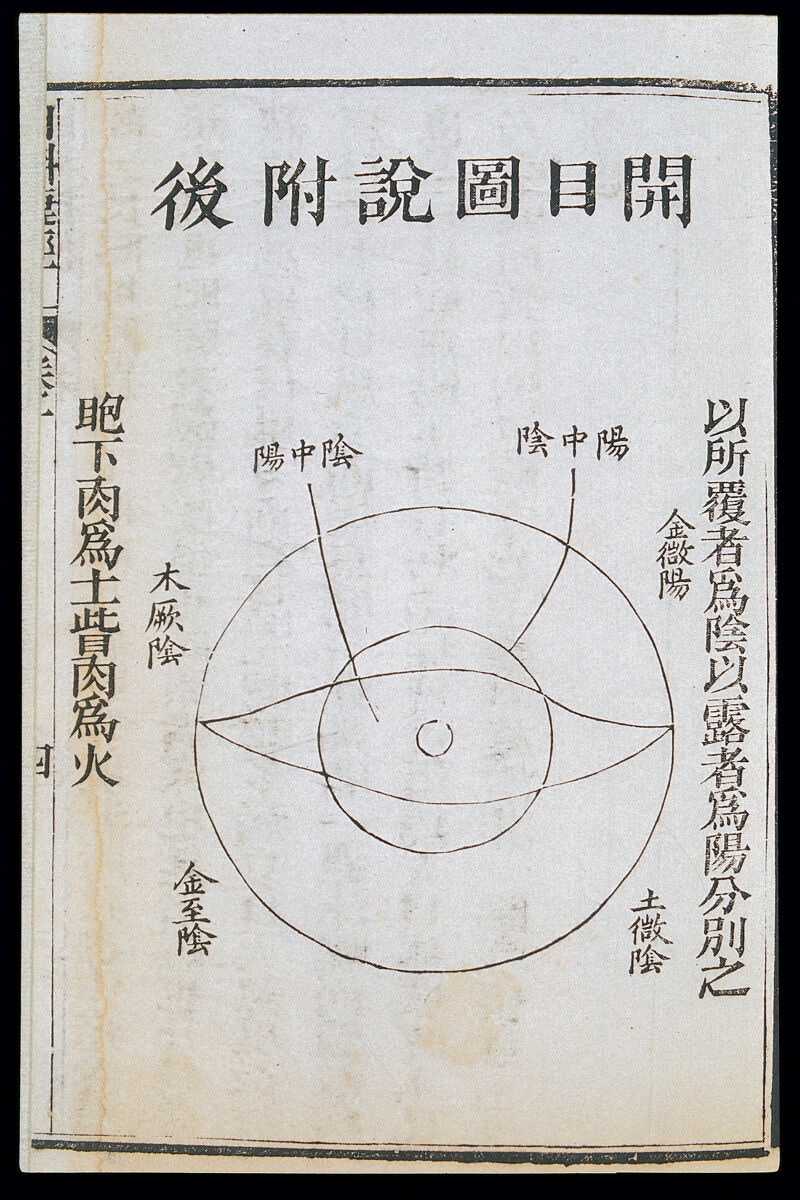 開目圖說附後
以所覆者爲陰以露者爲陽分別之
金微陽
陽中陰
陰中陽
木厥陰
土微陰
金至陰
眇下肉爲土眥肉爲火
四